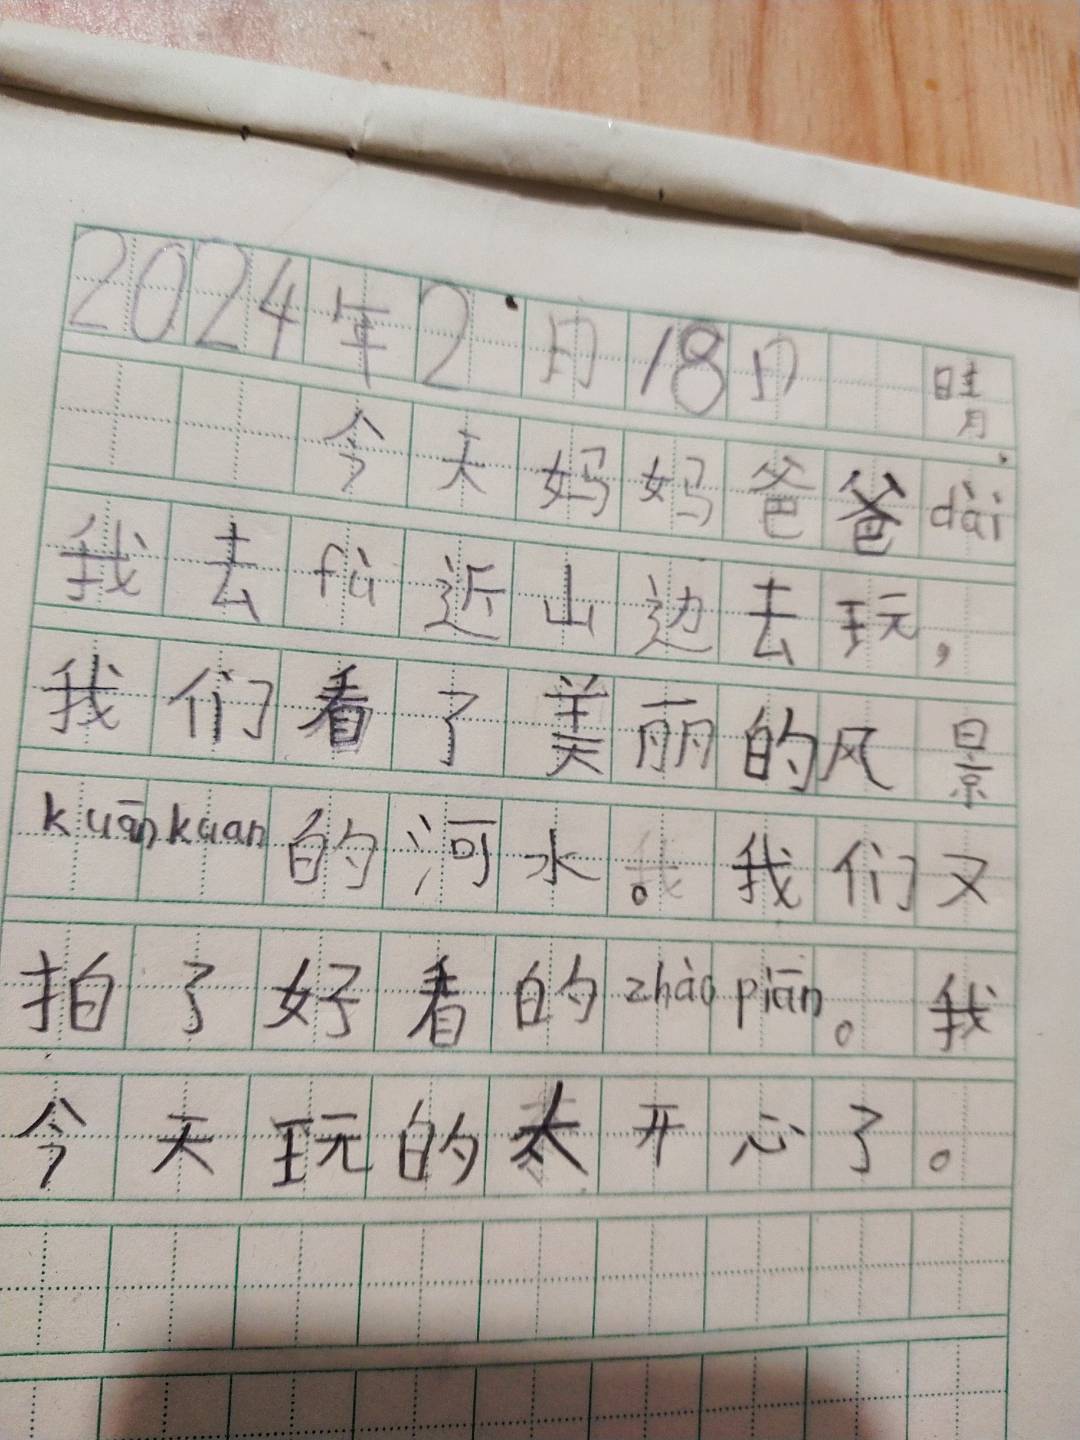 2024年2月18日 晴
今天妈妈爸爸dài
我去fù近山边去玩，
我们看了美丽的风景
kuānkuan的河水。我们又
拍了好看的zhàopiān。我
今天玩的太开心了。